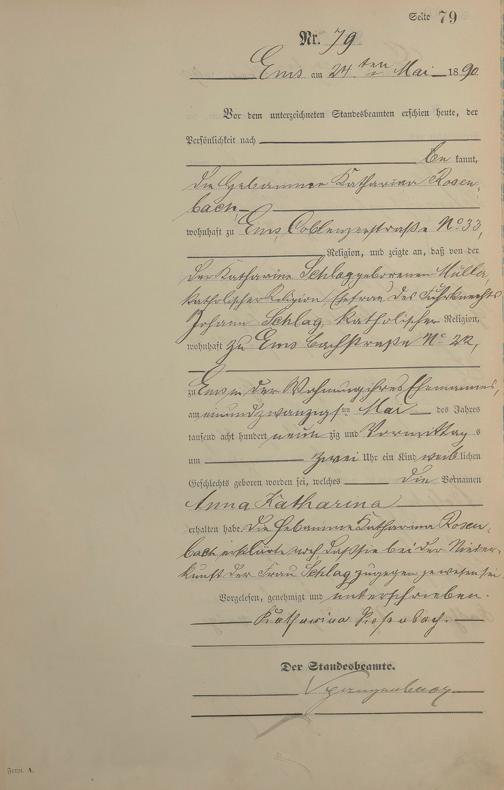 Seite 79
Nr. 79
Ems am 24ten Mai 1890
Vor dem unterzeichneten Standesbeamten erschien heute, der
Persönlichkeit nach
be kannt,
die Hebamme Katharina Rosen-
bach,
wohnhaft zu Ems, Coblenzerstraße No 33,
Religion, und zeigte an, daß von der
der Katharine Schlag geborenen Müller
katholischer Religion Ehefrau des Fuhrknechts
Johann Schlag, katholischer Religion,
wohnhaft zu Ems Bachstraße No
zu Ems in der Wohnung ihres Ehemannes,
am einundzwanzigsten Mai des Jahres
tausend acht hundert neun zig und Vormittags
um zwei Uhr ein Kind weiblichen
Geschlechts geboren worden sei, welches die Vornamen
Anna Katharina
erhalten habe. Die Hebamme Katharina Rosen-
bach erklärte noch daß sie bei der Nieder-
kunft der Frau Schlag zugegen gewesen sei
Vorgelesen, genehmigt und unterschrieben.
Katharina Rosenbach.
Der Standesbeamte.
Form. A.